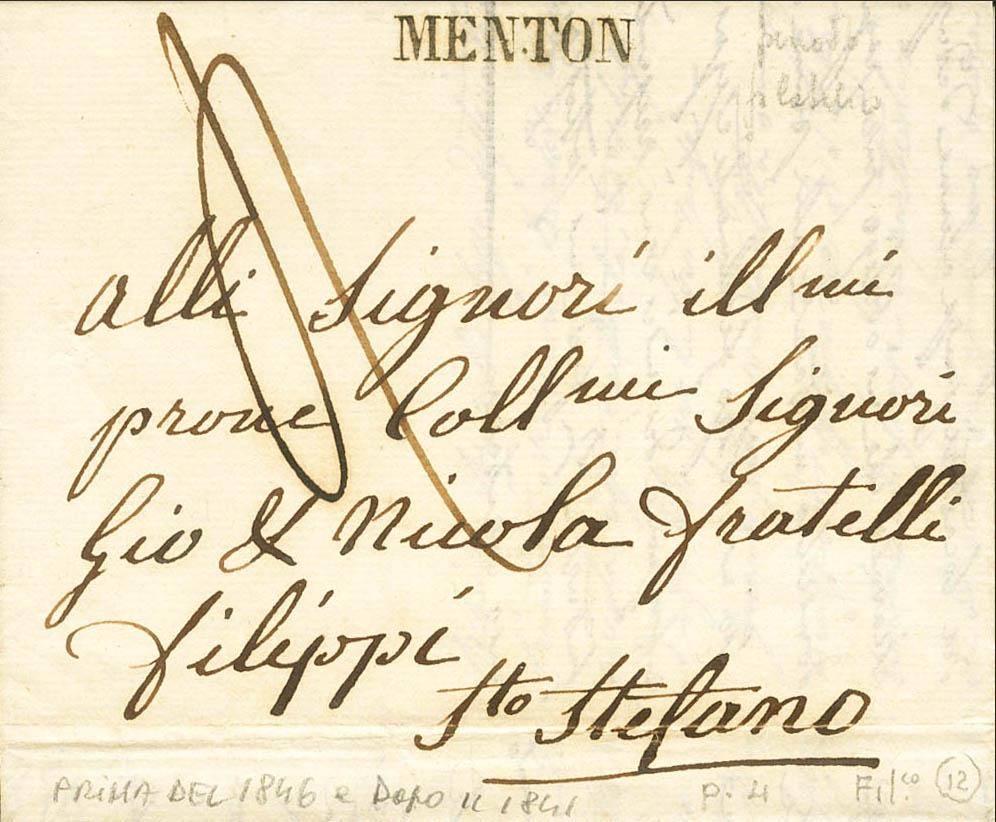 MENTON
periodo
filatelico
alli Signori illmi
prone Collmi Signori
Gio & Nicola fratelli
filippi
Sto Stefano
PRIMA DEL 1846 e DOPO IL 1841 P. 4 Fil.co 12